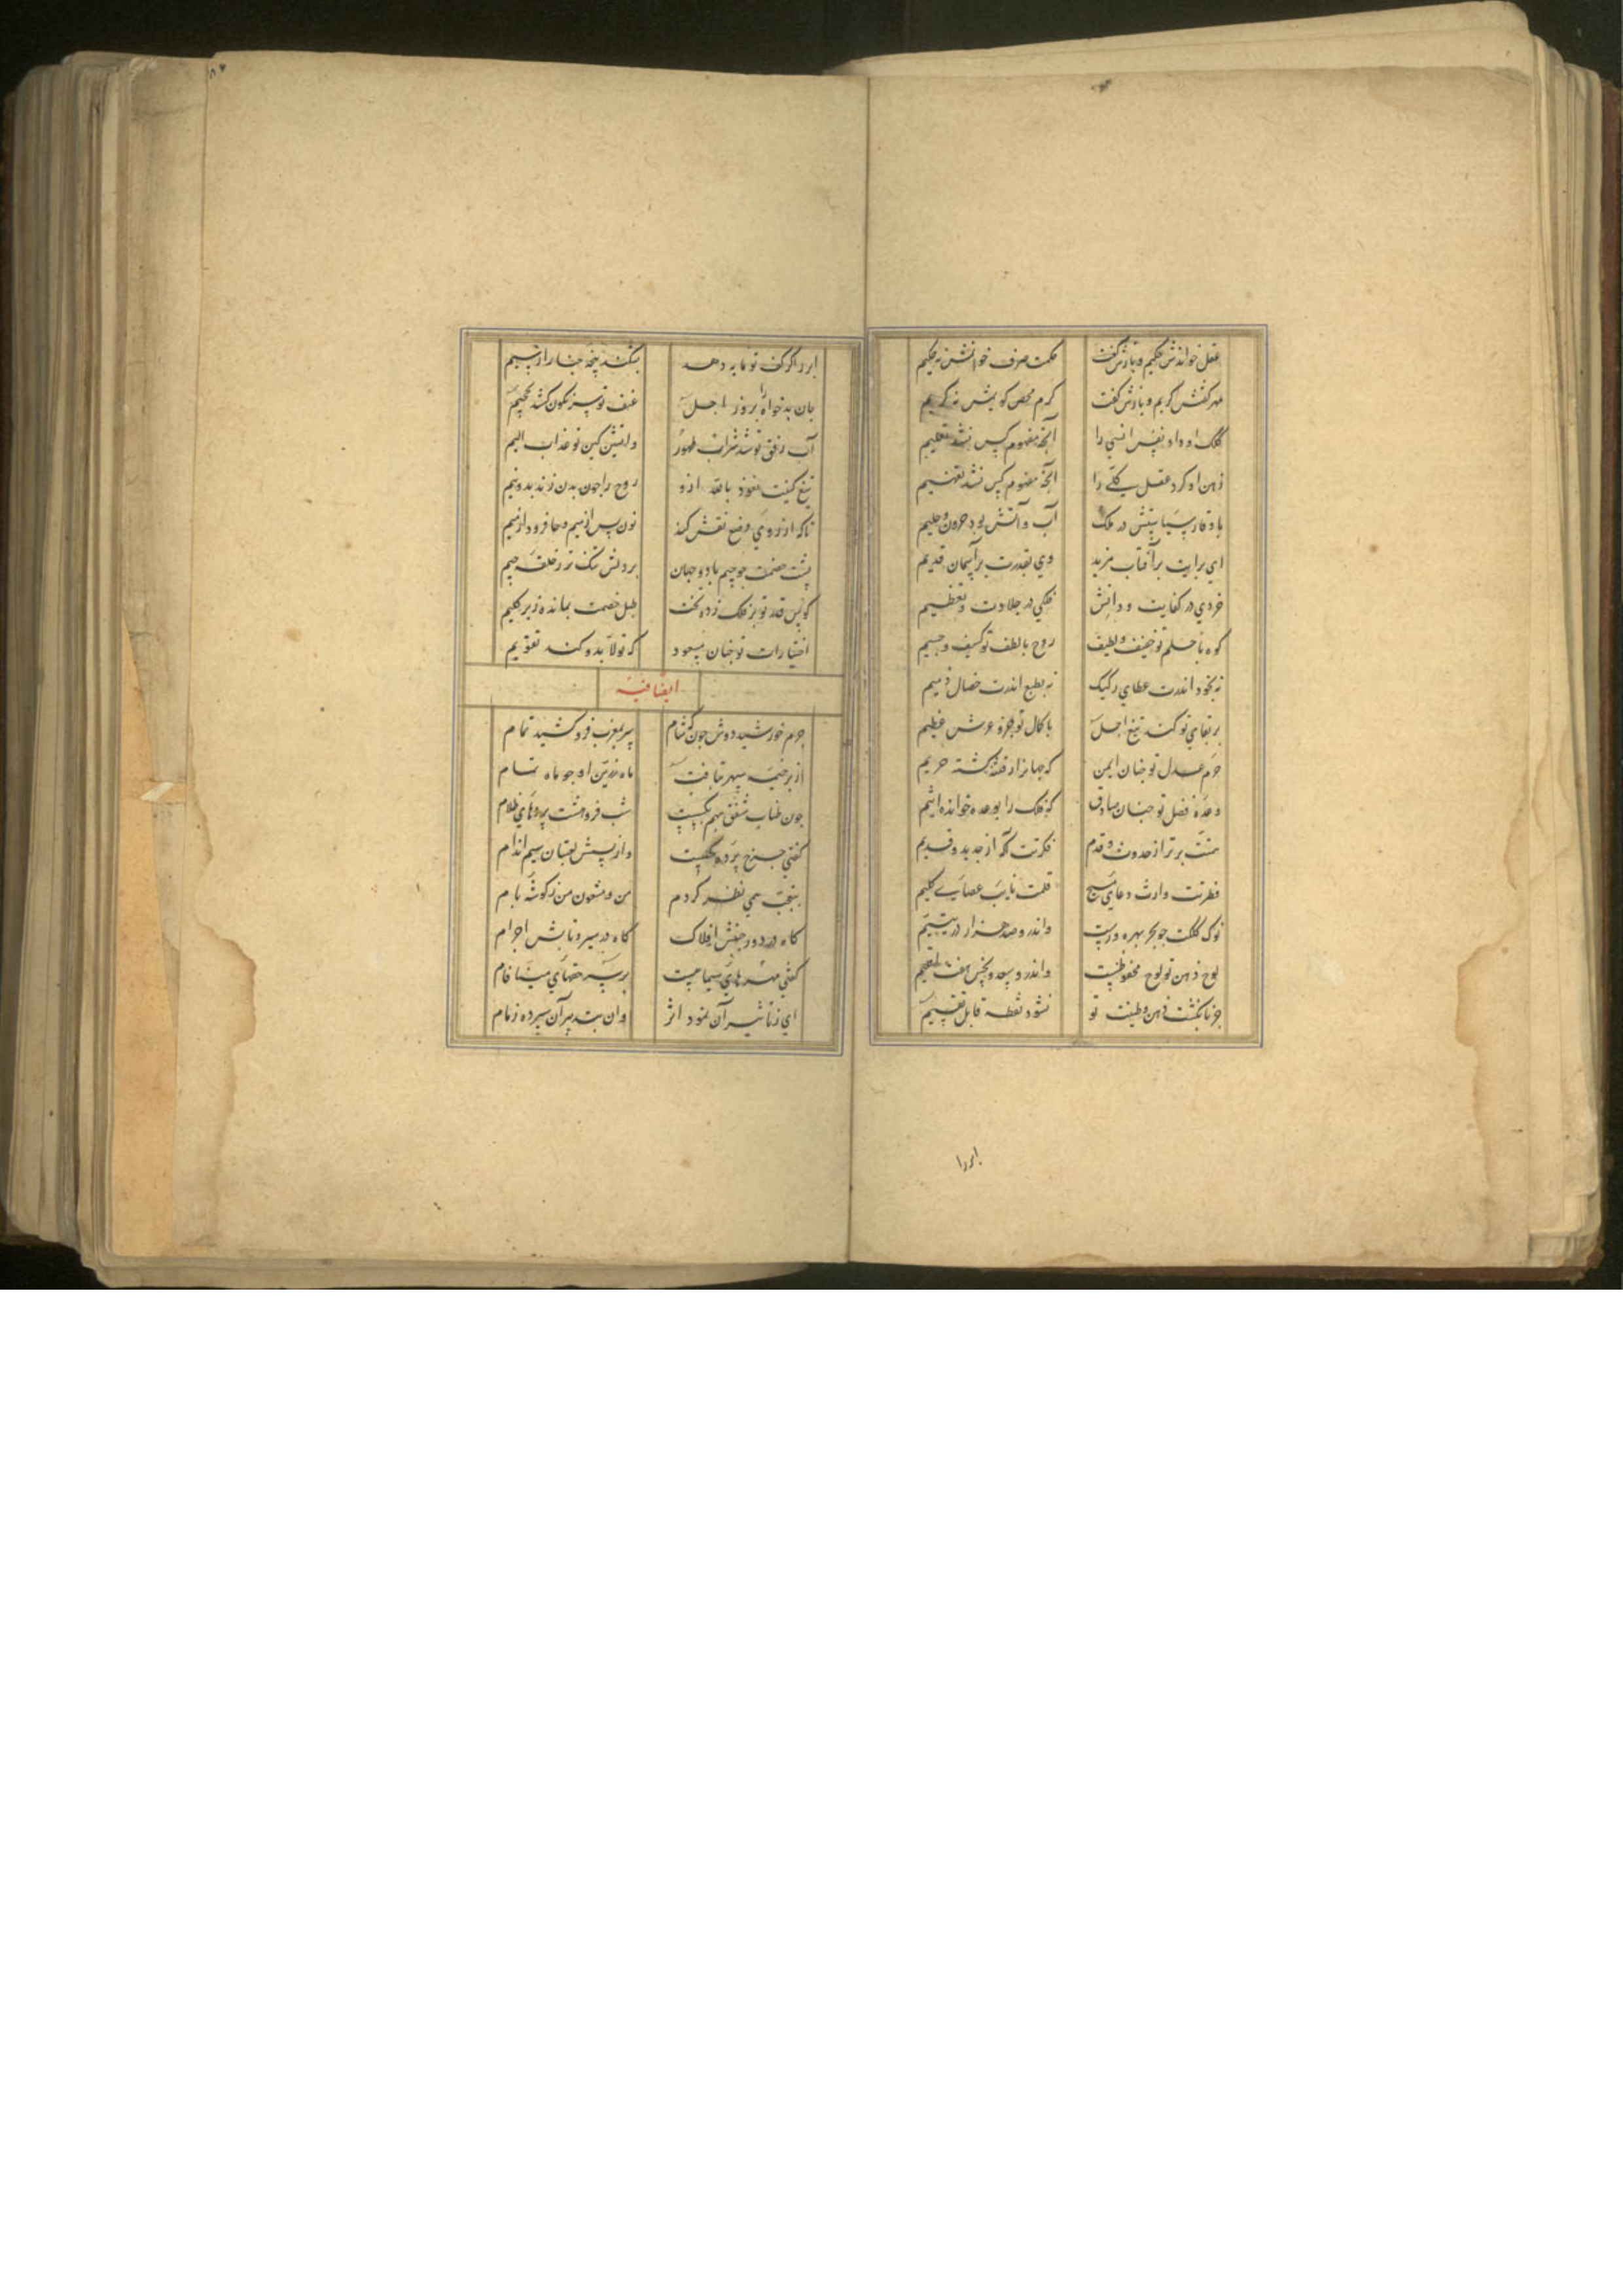 عقل خواندش حکیم و بازش گفت حکمت صرف خوانمش نه حکیم
مهر گفتش کریم و بازش گفت کرم محض گویمش نه کریم
کلک او داد نفس انسی را آنچه مفهوم کس نشد تعلیم
ذهن او کرد عقل کلی را آنچه مفهوم کس نشد تفهیم
با وقار سیاستش در ملک آب و آتش بود حرون و حلیم
ای برایت بر آفتاب مزید وی بقدرت بر آسمان قدیم
خردی در کفایت و دانش فلکی در جلادت و تعظیم
کوه با حلم تو خفیف و لطیف روح با لطف تو کثیف و جسیم
نه بخود اندرت عطای رکیک نه بطبع اندرت خصال ذمیم
بر بقای تو کند تیغ اجل با کمال تو عرش عظیم
حرم عدل تو چنان ایمن که جهانرا ز فتنه گشته حریم
وعدهٔ فضل تو چنان صادق که فلک را بوعده خوانده اثیم
همتت برتر از حدوث و قدم فکرتت آگه از جدید و قدیم
فطرتت وارث دعای مسیح قلمت نایب عصای کلیم
نوک کلکت چو بحر بهره ورست واندرو صد هزار در یتیم
لوح ذهن تو لوح محفوظست واندرو سعد و نحس هفت اقلیم
جز بانگشت ذهن و فطنت تو نشود نقطه قابل تقسیم
ابر را
ابر را گر کف تو مایه دهد بشکند پنجه چنار از سیم
جان بدخواه را بروز اجل عنف تو سرنگون کشد بجحیم
آب رفق تو شد شراب طهور و آتش کین تو عذاب الیم
تیغ کینت نعوذ بالله ازو روح را چون بدن زند بدو نیم
تا که از روی وضع نقش کند نون پس از میم و حا فرود از جیم
پشت خصمت چو جیم باد و جهان بر دلش تنگ تر ز حلقه میم
کوس قدر تو بر فلک زده بخت طبل خصمت بمانده زیر گلیم
اختیارات تو چنان مسعود که تولا بدو کند تقویم
ایضا فیه
جرم خورشید دوش چون گه شام سر بمغرب فرو کشید تمام
از بر خیمه سپهر بتافت ماه زرین او چو ماه تمام
چون طناب شفق ز هم بگسیست شب فرو هشت پردهای ظلام
گفتی چرخ پرده کحلیست واز پسش لعبتان سیم اندام
بتعجب همی نظر کردم من و معشوق من ز گوشه بام
گاه در دور جنبش افلاک گاه در سیر و تابش اجرام
گفتی مهره های سیماب‌یست بر سر حقهای مینا فام
ای ز تاثیر آن نمود اثر وان بتدبیر آن سپرده زمام